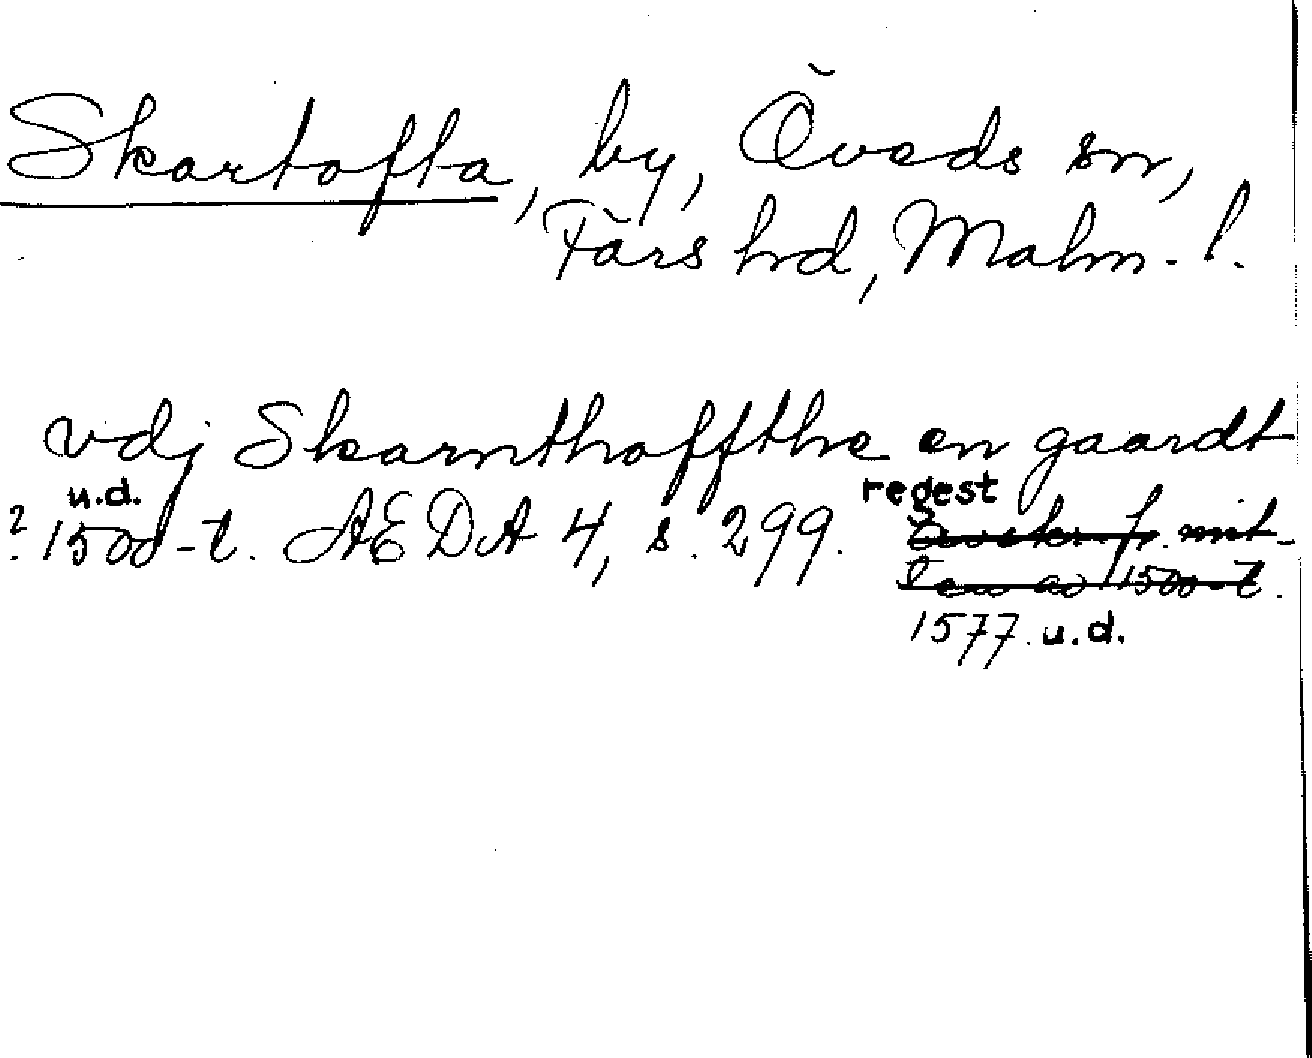 Skartofta, by, Öveds sn,
Färs hd, Malm. l.
vdj Skarnthoffthe en gaardt
u.d. regest
? 1500-t. AEDA 4, s. 299. Avskr. fr. mit-
ten av 1500-t.
1577 u.d.